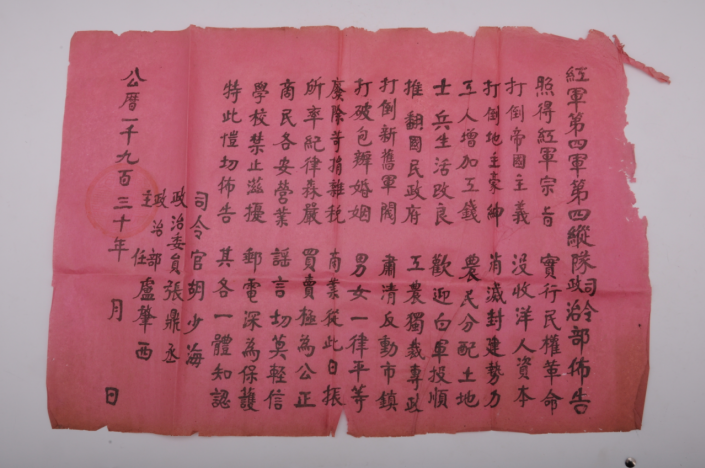 紅軍第四軍第四縱隊司令政治部佈告
照得紅軍宗旨 實行民權革命
打倒帝國主義 沒收洋人資本
打倒地主豪紳 消滅封建勢力
工人增加工錢 農民分配土地
士兵生活改良 歡迎白軍投順
推翻國民政府 工農獨裁專政
打倒新舊軍閥 肅清反動市鎮
打破包辦婚姻 男女一律平等
廢除苛捐雜稅 商業從此日振
所率紀律森嚴 買賣極為公正
商民各安營業 謠言切莫輕信
學校禁止滋擾 郵電深為保護
特此愷切佈告 其各一體知認
司令官胡少海
政治委員張鼎丞
政治部主任盧肇西
公曆一千九百三十年 月 日